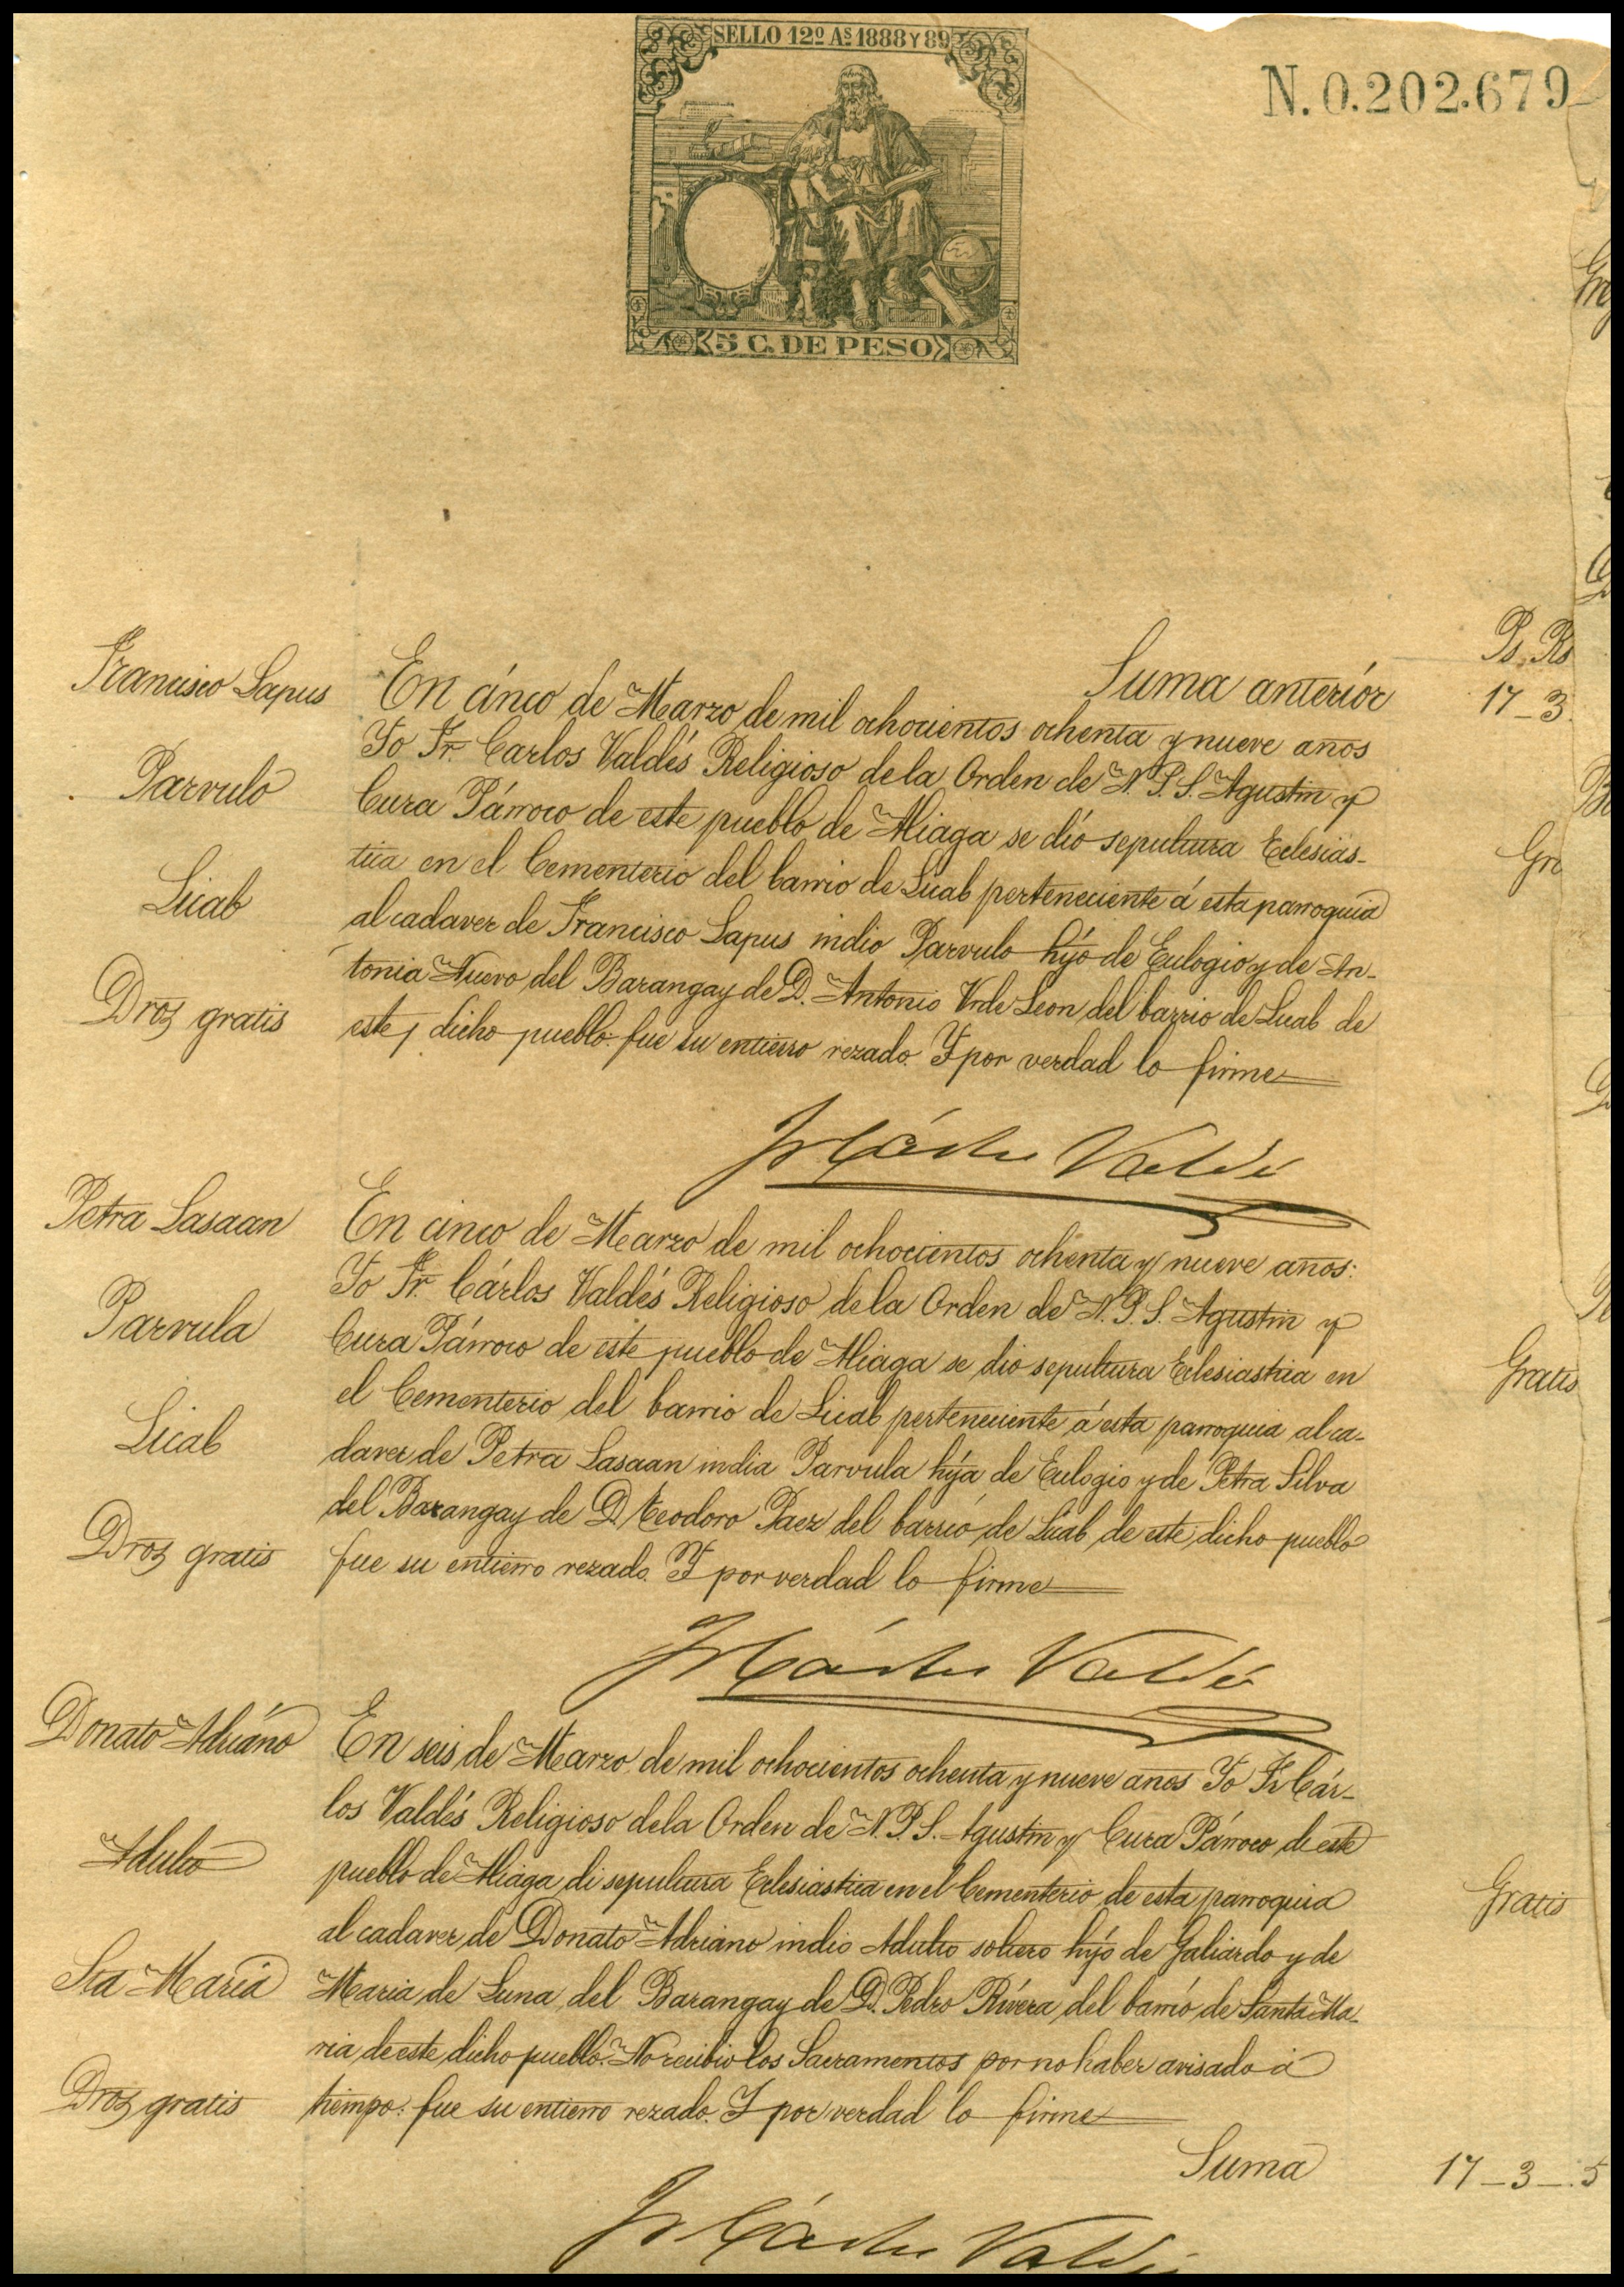 SELLO 12º As 1888 Y 89
N. 0.202.679
5 C. DE PESO
Ps. Rs
Suma anterior 17_3
Francisco Lapus
Parvulo
Licab
Dros gratis
En cinco de Marzo de mil ochocientos ochenta y nueve años
Yo Fr. Carlos Valdés Religioso de la Orden de N. P. S. Agustin y
Cura Párroco de este pueblo de Aliaga se dió sepultura Eclesias-
tica en el Cementerio del barrio de Licab perteneciente á esta parroquia
al cadaver de Francisco Lapus indio Parvulo hijo de Eulogio y de An-
tonia Nuevo del Barangay de D. Antonio V. de Leon del barrio de Licab de
este dicho pueblo. fue su entierro rezado. Y por verdad lo firme
Gra
Fr Cárlos Valdés
Petra Lasaan
Parvula
Licab
Dros gratis
En cinco de Marzo de mil ochocientos ochenta y nueve años:
Yo Fr. Cárlos Valdés Religioso de la Orden de N. P. S. Agustin y
Cura Párroco de este pueblo de Aliaga se dio sepultura Eclesiastica en
el Cementerio del barrio de Licab perteneciente á esta parroquia al ca-
daver de Petra Lasaan india Parvula hija de Eulogio y de Petra Silva
del Barangay de D. Teodoro Paez del barrio de Licab de este dicho pueblo
fue su entierro rezado. Y por verdad lo firme
Gratis
Fr Cárlos Valdés
Donato Adriano
Adulto
Sta Maria
Dros gratis
En seis de Marzo de mil ochocientos ochenta y nueve años Yo Fr Cár-
los Valdés Religioso de la Orden de N. P. S. Agustin y Cura Párroco de este
pueblo de Aliaga di sepultura Eclesiastica en el Cementerio de esta parroquia
al cadaver de Donato Adriano indio Adulto soltero hijo de Galiardo y de
Maria de Luna del Barangay de D. Pedro Rivera del barrio de Santa Ma-
ria de este dicho pueblo. No recibio los Sacramentos por no haber avisado á
tiempo: fue su entierro rezado. Y por verdad lo firme
Gratis
Suma 17_3_5
Fr Cárlos Valdés